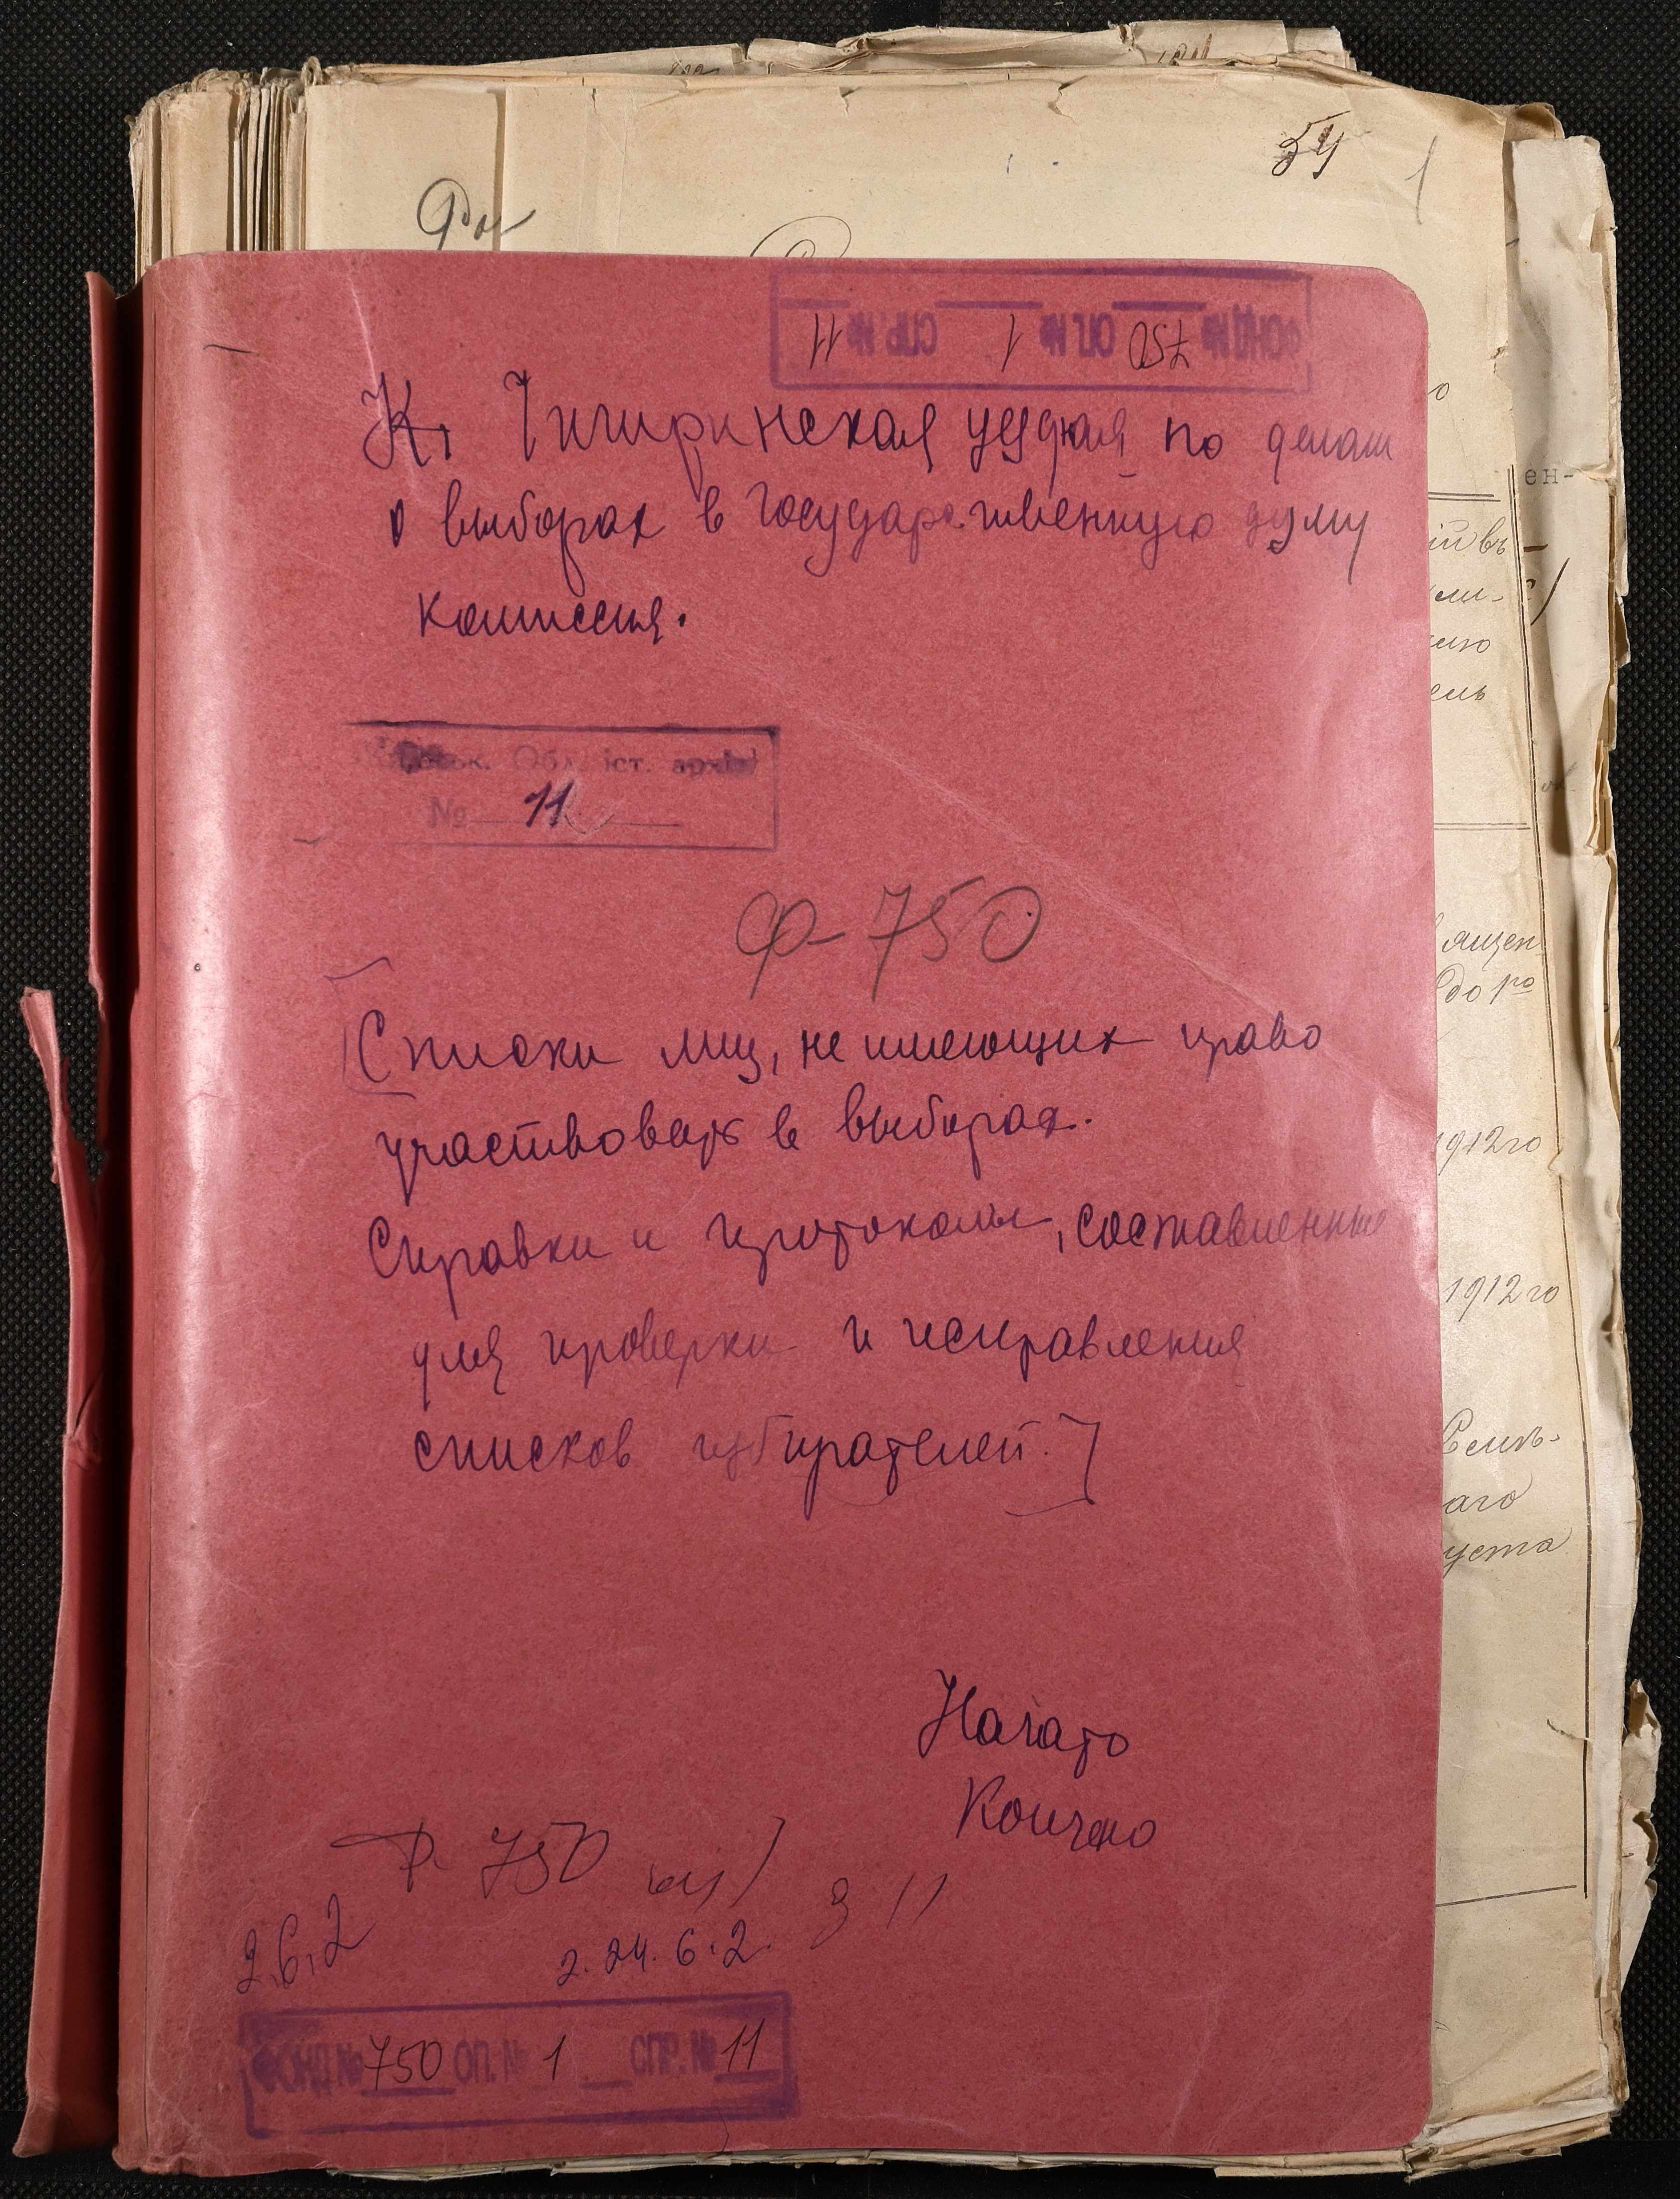 54
1
Фо
ФОНД № 750 ОП. № 1 СПР. № 11
К. Чигиринская уездная по делам
о выборах в государственную думу
комиссия.
Обл. іст. архів
№ 11
Ф-750
[Списки лиц, не имеющих право
участвовать в выборах.
Справки и протоколы, составленные
для проверки и исправления
списков избирателей.]
Начато
Кончено
Ф. 750 оп 1
З 11
2.6.2
2.24.6.2.
ФОНД № 750 ОП. № 1 СПР. № 11
ен-
ій въ
ящен
1912 го
1912 го
аго
уста